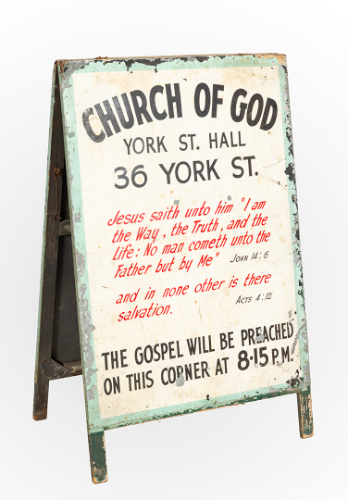 CHURCH OF GOD
YORK ST. HALL
36 YORK ST.
Jesus saith unto him "I am
the Way, the Truth, and the
Life: No man cometh unto the
Father but by Me" JOHN 14:6
and in none other is there
salvation. ACTS 4:12
THE GOSPEL WILL BE PREACHED
ON THIS CORNER AT 8·15 P.M.